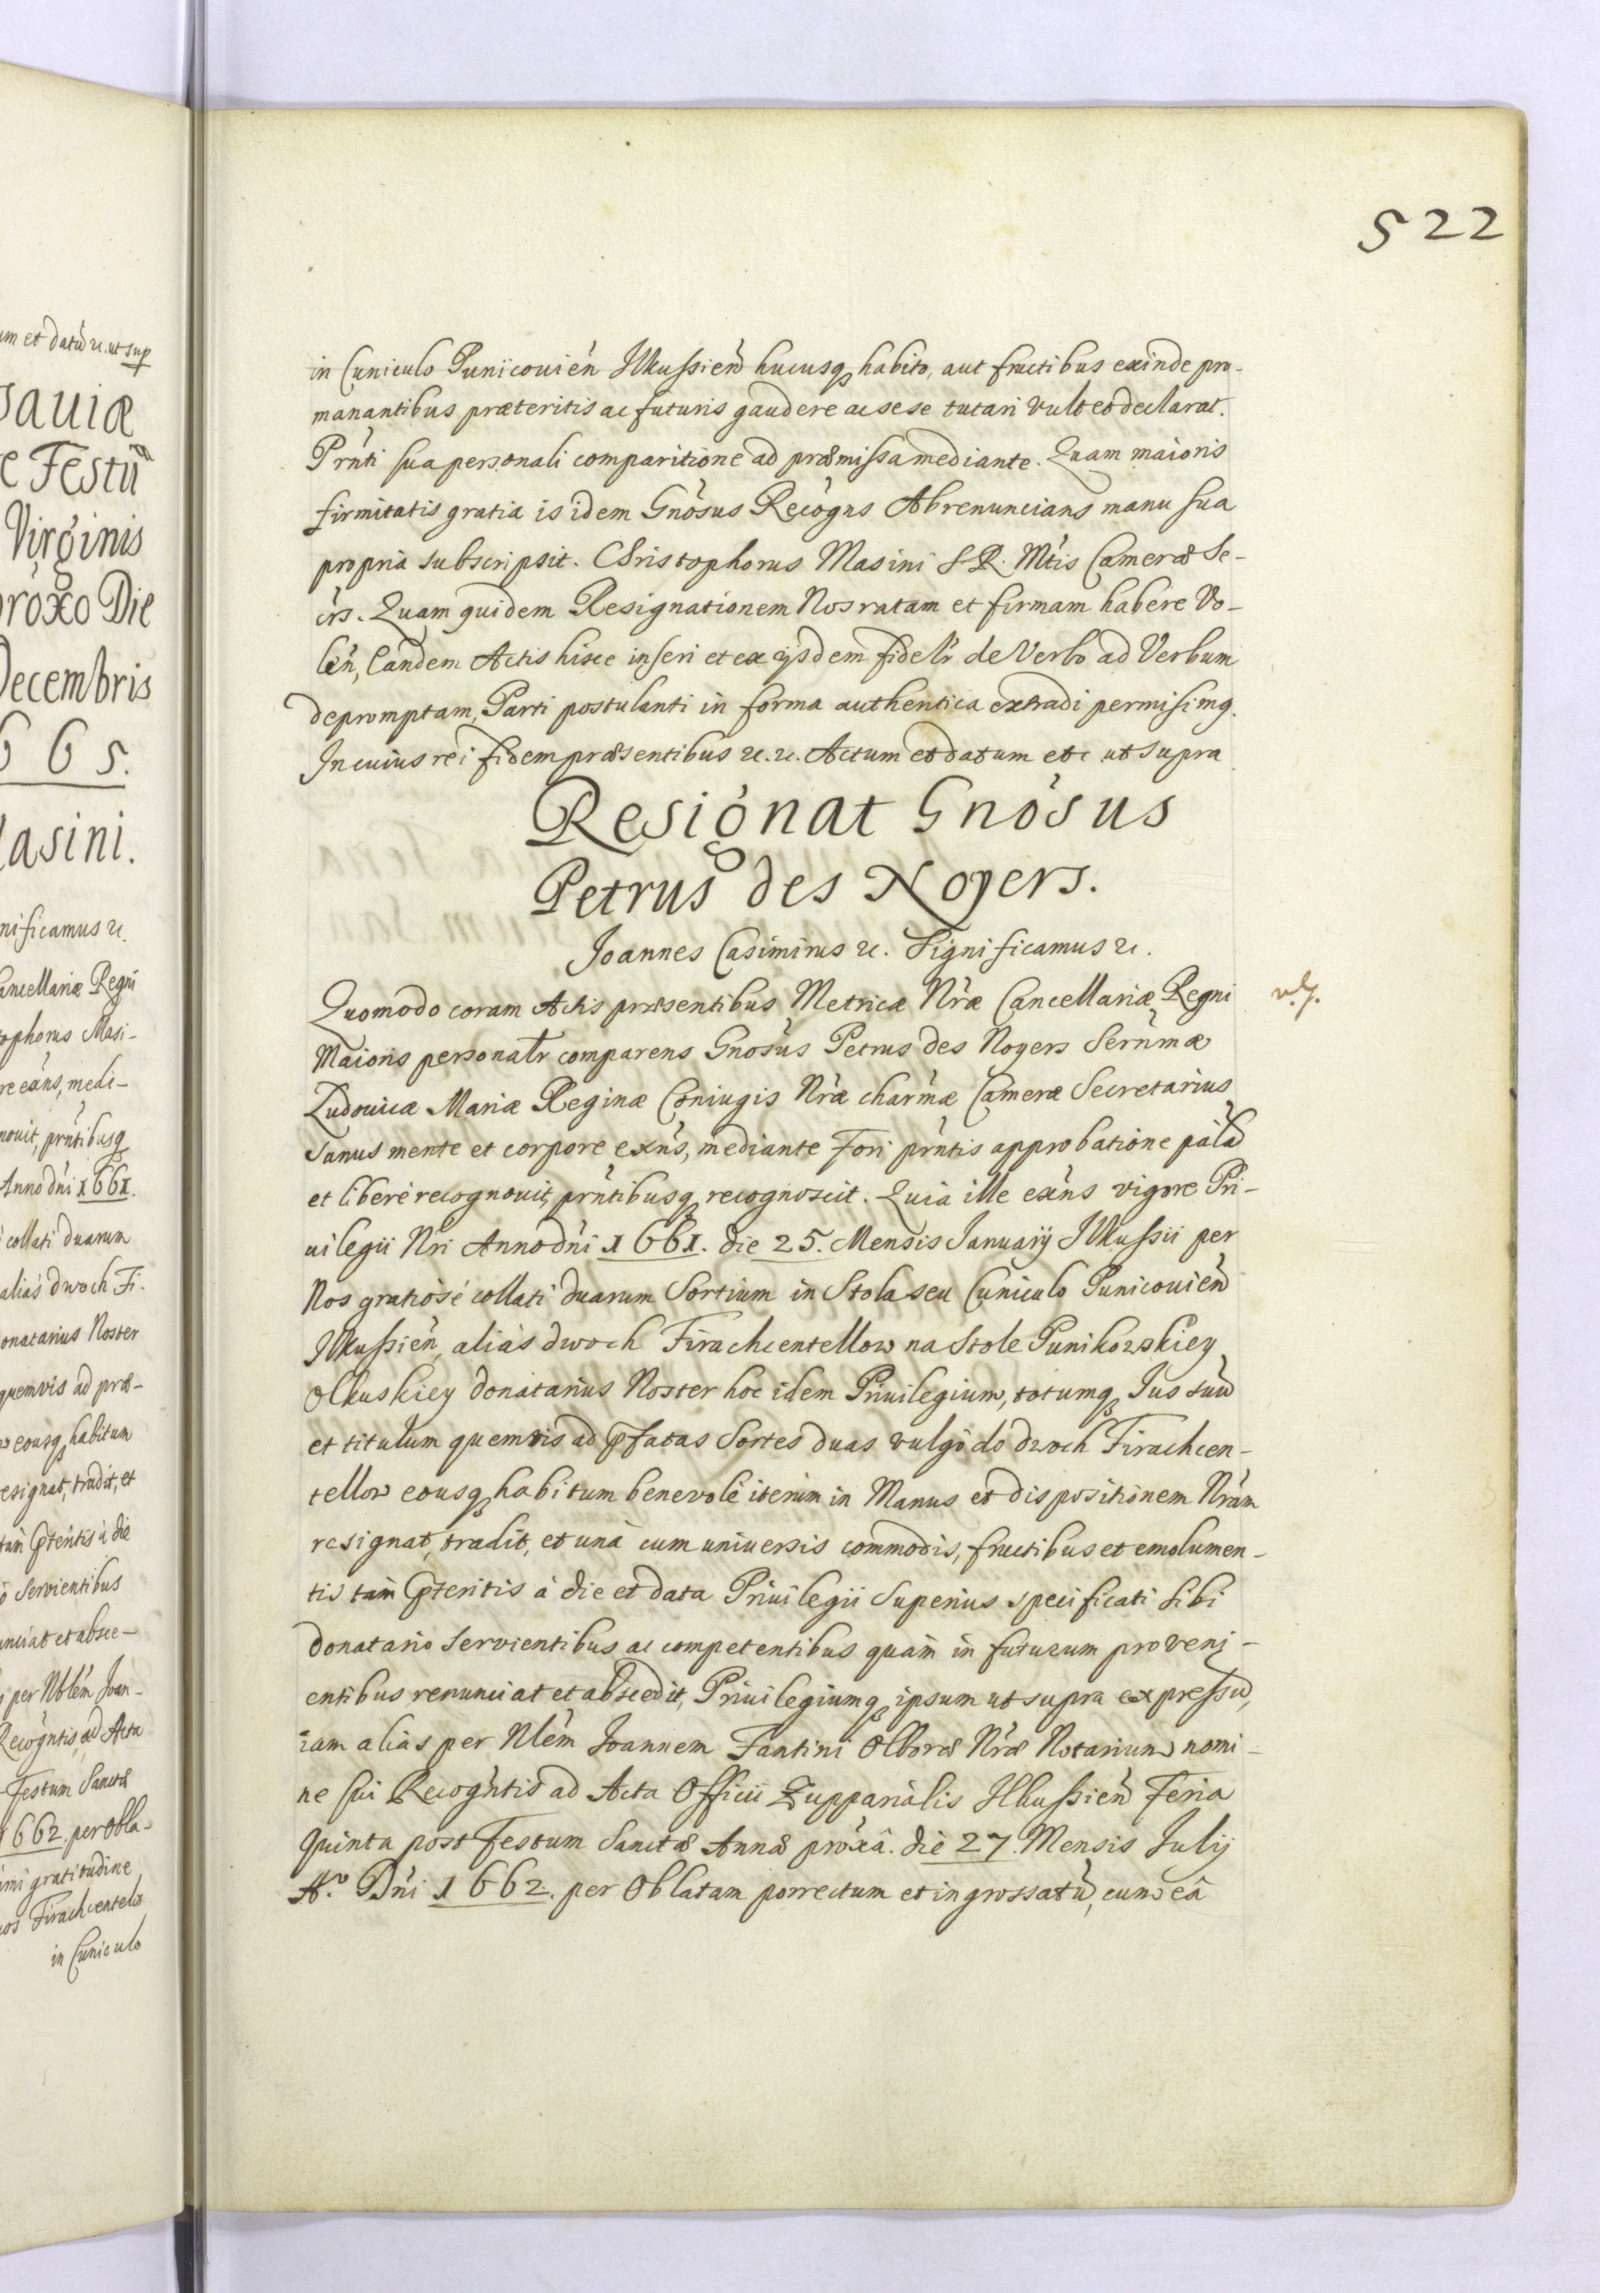 um et datū etc. ut sup
saviæ
e Festū
Virginis
próxo Die
Decembris
665.
Masini.
nificamus etc.
Cancellariæ Regni
tophorus Masi-
re exńs, medi-
novit, prńtibusq
Anno dńi 1661.
collati duarum
alias dwoch Fi-
onatarius Noster
quemvis ad præ-
eousq habitum
resignat, tradit, et
tam pteritis á die
Servientibus
unciat et absce-
per Nblem Joan-
Recogńtis ad Acta
Festum Sanctæ
1662. per Obla-
imi gratitudine
os Firachcentelo
in Cuniculo
522
in Cuniculo Punicovień Ilkussień hucusq habito, aut fructibus exinde pro-
manantibus præteritis ac futuris gaudere ac sese tutari vult et declarat.
Prńti sua personali comparitione ad præmissa mediante. Quam maioris
firmitatis gratia is idem Gnósus Recógns Abrenuncians manu sua
propria subscripsit. Christophorus Masini S. R. Mtis Cameræ Se-
crs. Quam quidem Resignationem Nos ratam et firmam habere Vo-
leń, Eandem Actis hisce inseri et ex ijsdem fidelr de Verbo ad Verbum
depromptam, Parti postulanti in forma authentica extradi permisimq.
In cuius rei fidem præsentibus etc. etc. Actum et datum etc ut supra
Resignat Gnósus
Petrus des Noyers.
Joannes Casimirus etc. Significamus etc.
Quomodo coram Actis præsentibus Metricæ Nræ Cancellariæ Regni
Maioris personalr comparens Gnósus Petrus des Noyers Serńmæ
Ludovicæ Mariæ Reginæ Coniugis Nræ charmæ Cameræ Secretarius
sanus mente et corpore exńs, mediante Fori prńtis approbatione palā
et liberè recognovit, prńtibusq recognoscit. Quia ille exńs vigore Pri-
uilegii Nri Anno dńi 1661. die 25. Mensis Januarij Ilkussii per
Nos gratiosé collati duarum Sortium in Stola seu Cuniculo Punicovień
Ilkussień, aliàs dwoch Firachcentellow na Stole Punikowskiey
Olkuskiey donatarius Noster hoc idem Privilegium, totumq Jus suū
et titulum quemvis ad pfatas Sortes duas vulgo do dwoch Firachcen-
tellow eousq habitum benevolè iterum in Manus et dispositionem Nrám
resignat, tradit, et unà cum universis commodis, fructibus et emolumen-
tis tam pteritis á die et data Privilegii Superius specificati sibi
donatario servientibus ac competentibus quám in futurum proveni-
entibus renunciat et abscedit, Privilegiumq ipsum ut supra expressū,
iam aliàs per Nlém Joannem Fantini Olboræ Nræ Notarium nomi-
ne sui Recogńtis ad Acta Officii Zupparialis Ilkussień Feria
Quinta post Festum Sanctæ Annæ próxâ. die 27. Mensis Julij
A.º Dńi 1662. per Oblatam porrectum et ingrossatū, cum eâ